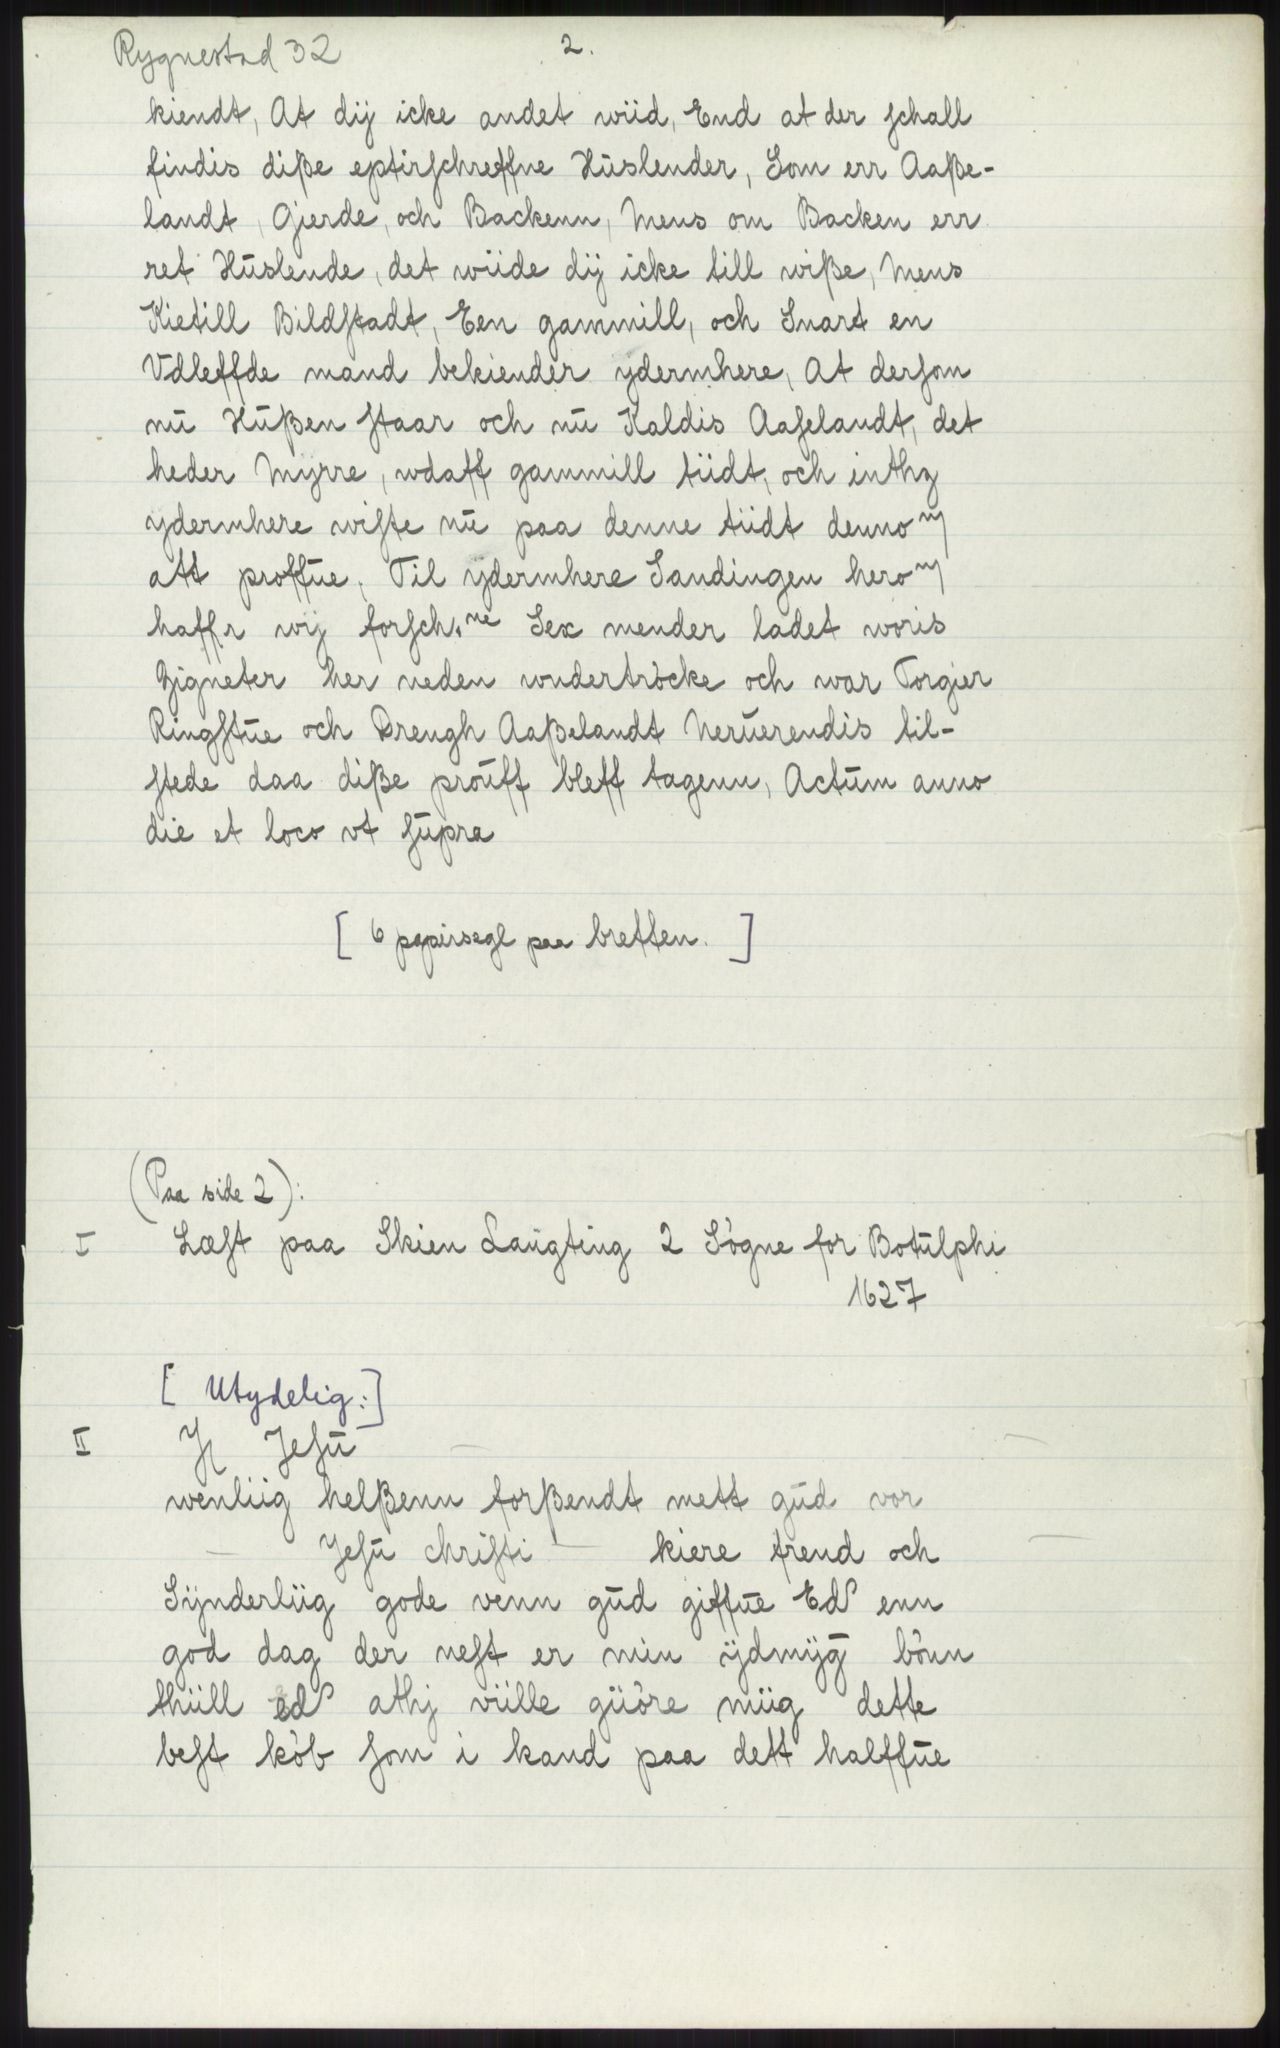 Rygnestad 32
2.
kiendt, At dij icke andet wiid, End at der schall
findis diße eptirschreffne Hüslender, Som err Aaße-
landt, Gierde, och Backenn, Mens om Backen err
ret Hüslende, det wiide dij icke till wiße, Mens
Kietill Bildstadt, Een gammill, och Snart en
Vdleffde mand bekiender ydermhere, At dersom
nū Hūßen staar och nū Kaldis Aaselandt, det
heder Myrre, wdaff gammill tiidt, och inthz
ydermhere wiste nū paa denne tiidt dennom
att proffūe, Til ydermhere Sandingen herom
haffr wij forsch.ne Sex mender ladet woris
Zigneter her neden wndertròcke och war Torgier
Ringstūe och Drengh Aaßelandt Nerūerendis til-
stede daa diße proūff bleff tagenn, Actūm anno
die et loco vt sūpra
[ 6 papirsegl paa bretten. ]
(Paa side 2):
I Læst paa Skien Laūgting 2 Sògne for Botūlphi
1627
[ Utydelig:]
II Jesū
wenliig helßenn forßendt mett gūd vor
— Jesū christi — kiere frend och —
Sÿnderliig gode venn gūd giffūe Ed enn
god dag der nest er min ÿdmÿg bònn
thiill ed athj viille giòre miig dette
best kòb som i kand paa dett halffūe